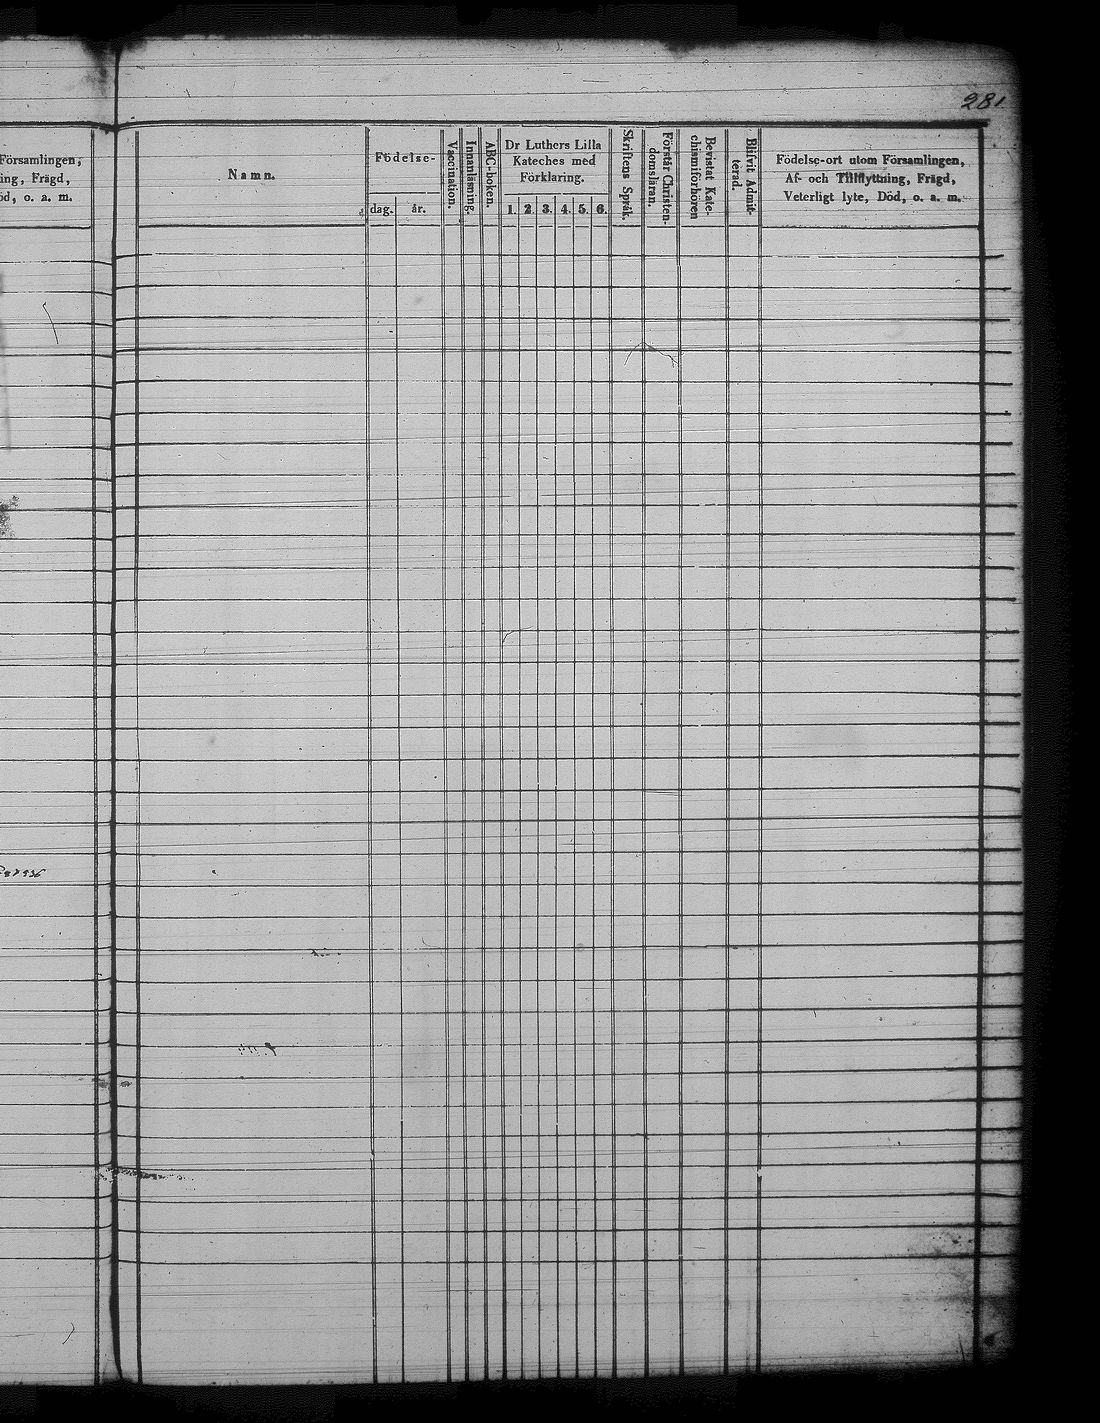 281
Församlingen,
ing, Frägd,
öd, o. a. m.
Namn.
Födelse-
dag. år.
Vaccination.
Innanläsning.
ABC-boken.
Dr Luthers Lilla
Kateches med
Förklaring.
1. 2. 3. 4. 5. 6.
Skriftens Språk.
Förstår Christen-
domsläran.
Bevistat Kate-
chismiförhören
Blifvit Admit-
terad.
Födelse-ort utom Församlingen,
Af- och Tillflyttning, Frägd,
Veterligt lyte, Död, o. a. m.